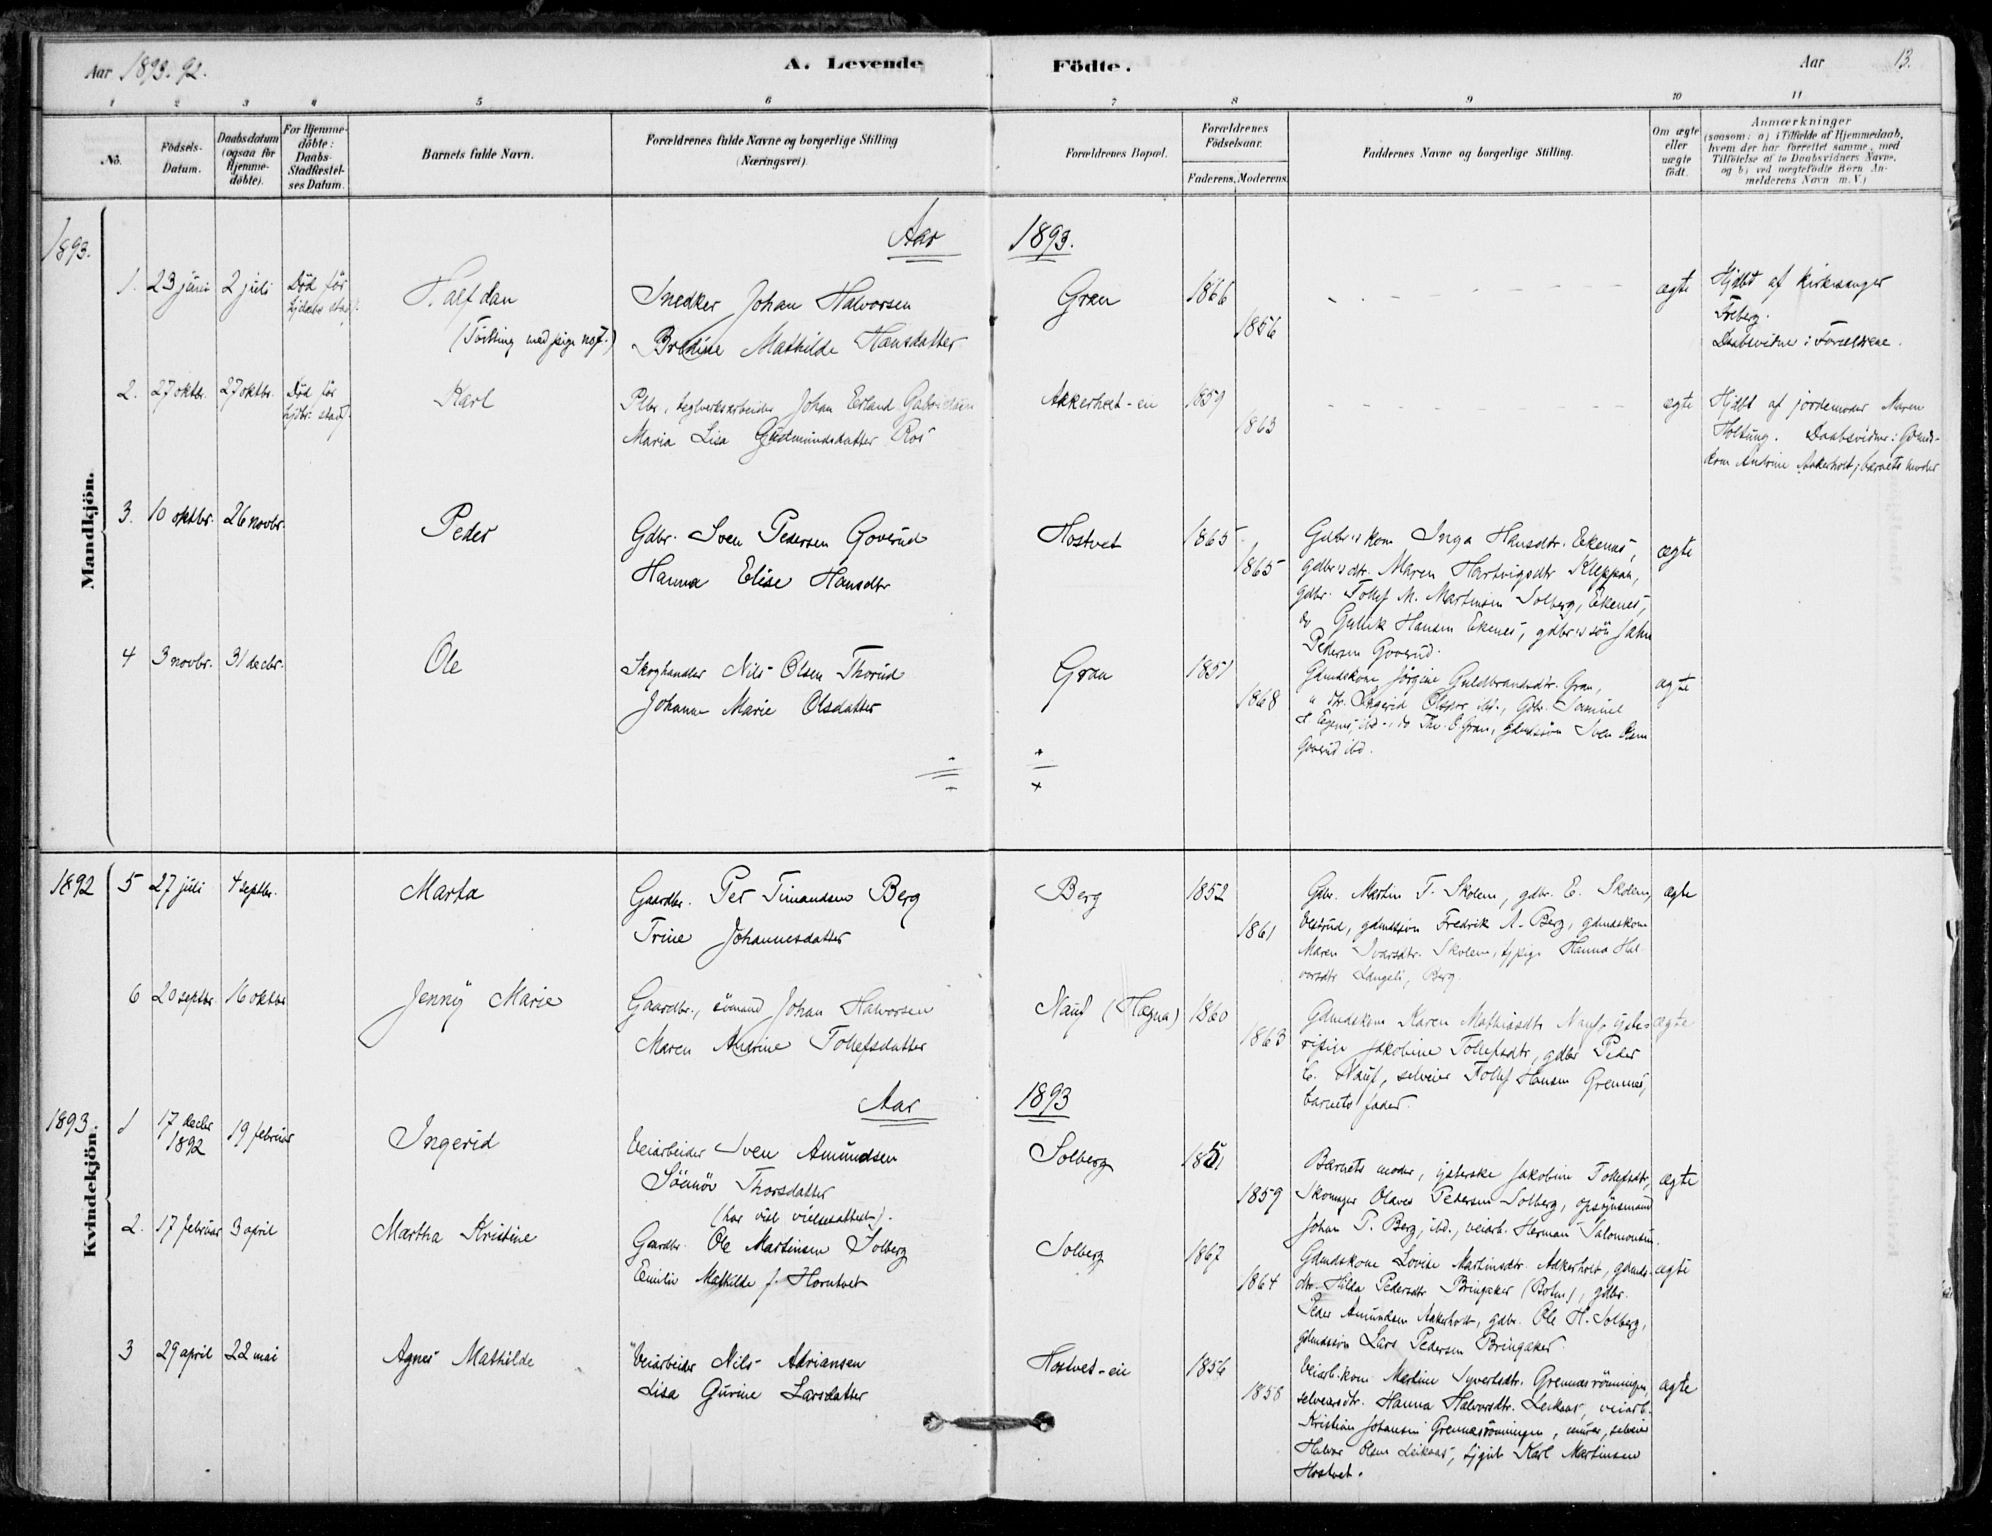 Aar 1893. 92.
A. Levende
Födte.
Aar
13.
1 2 3 4 5 6 7 8 9 10 11
No.
Födsels-
Datum.
Daabsdatum
(ogsaa for
Hjemme-
döbte).
For Hjemme-
döbte:
Daabs-
Stadfæstel-
ses Datum.
Barnets fulde Navn.
Forældrenes fulde Navne og borgerlige Stilling
(Næringsvei).
Forældrenes Bopæl.
Forældrenes
Födselsaar.
Faderens. Moderens.
Faddernes Navne og borgerlige Stilling.
Om ægte
eller
uægte
födt.
Anmærkninger
(saasom: a) i Tilfælde af Hjemmedaab,
hvem der har forrettet samme, med
Tilföielse af to Daabsvidners Navne,
og b) ved uægtefödte Börn An-
melderens Navn m. V.)
Mandkjön.
1893.
Aar 1893.
1. 23 juni 2 juli Död för
Halfdan
(Tvilling med pige)
Snedker Johan Halvorsen
Mathilde Hansdatter
Gran
1866
1856
ægte
Hjdbt af kirkesanger
Freberg.
Daabsvidner: Forældrene.
2. 27 oktbr. 27 oktbr. Död för
Karl
teglverksarbeider Johan Erland Gabrielsen
Maria Lisa Gudmundsdatter Ros
Akkerholt-eie
1859
1863
ægte
Hjdbt af jordemoder Maren
Holtung. Daabsvidner: Gdmds-
kom Andrine Aakerholt, barnets moder
3. 10 oktbr. 26 novbr.
Peder
Gdbr. Sven Pedersen Goverud
Hanna Elise Hansdtr
Hostvet
1865
1865
Gdbr.s kom Inga Hansdtr. Ekenes,
gdbr.s dtr. Maren Hartvigsdtr Kleppan,
gdbr. Tollef M. Martinsen Solberg, Ekenes,
do Hansen Ekenes, gdbr.s sön Jahn
Pedersen Goverud.
ægte
4 3 novbr. 31 decbr.
Ole
Skoghandler Nils Olsen Thorud
Johanne Marie Olsdatter
Gran
1851
1868
Gdmdskone Jörgine Guldbrandsdtr. Gran,
" dtr. Ingerid ibd., Gdbr. Samuel
ibd., do Thv. E. Gran, gdmdssön Sven Olsen
Goverud ibd.
ægte
Kvindekjön.
1892 5 27 juli 4 septbr.
Marta
Gaardbr. Per Timandsen Berg
Trine Johannesdatter
Berg
1852
1861
Gdbr. Martin T. Skolem, gdbr. E. Skolem,
gdmdssön Fredrik A. Berg, gdmdskone
Maren Ivarsdtr. Skolem, tjpige Hanna Hal-
vorsdtr Langeli, Berg.
ægte
6 20 septbr. 16 oktbr
Jenny Marie
Gaardbr., sömand Johan Halvorsen
Maren Andrine Tollefsdatter
Nauf (Hægna)
1860
1863
Gdmdskom Karen Mathiasdtr Nauf, yste-
ripige Jakobine Tollefsdtr, gdbr Peder
C. Nauf, selveier Tollef Hansen Grennes,
barnets fader.
ægte
Aar 1893
1893. 1 17 decbr
1892
19 februar
Ingerid
Veiarbeider Sven Amundsen
Sönnöv Thorsdatter
(har vist vielsesattest).
Solberg
1851
1859
Barnets moder, ysterske Jakobine Tollefsdtr,
Skomager Olaves Pedersen Solberg, opsynsmand
Johan P. Berg, ibd., veiarb. Herman Salomonsen.
ægte
2. 17 februar 3 april
Martha Kristine
Gaardbr. Ole Martinsen Solberg
Emilie Mathilde f. Horntvet
Solberg
1867
1864
Gdmdskone Lovise Martinsdtr. Aakerholt, gdmds-
dtr. Hilda Pedersdtr Bringaker (Botne), gdbr.
Peder Amundsen Aakerholt, gdbr. Ole H. Solberg,
gdmdssön Lars Pedersen Bringaker.
ægte
3 29 april 22 mai
Agnes Mathilde
Veiarbeider Nils Adriansen
Lisa Gurine Larsdatter
Hostvet-eie
1856
1858
Veiarb.kom Martine Syvertsdtr. Grennesrönningen,
selveiersdtr. Hanna Halvorsdtr. Leikaas, veiarb.
Kristian Johansen Grennesrönningen, murer, selveier
Halvor Olsen Leikaas, tjgut Karl Martinsen
Hostvet.
ægte